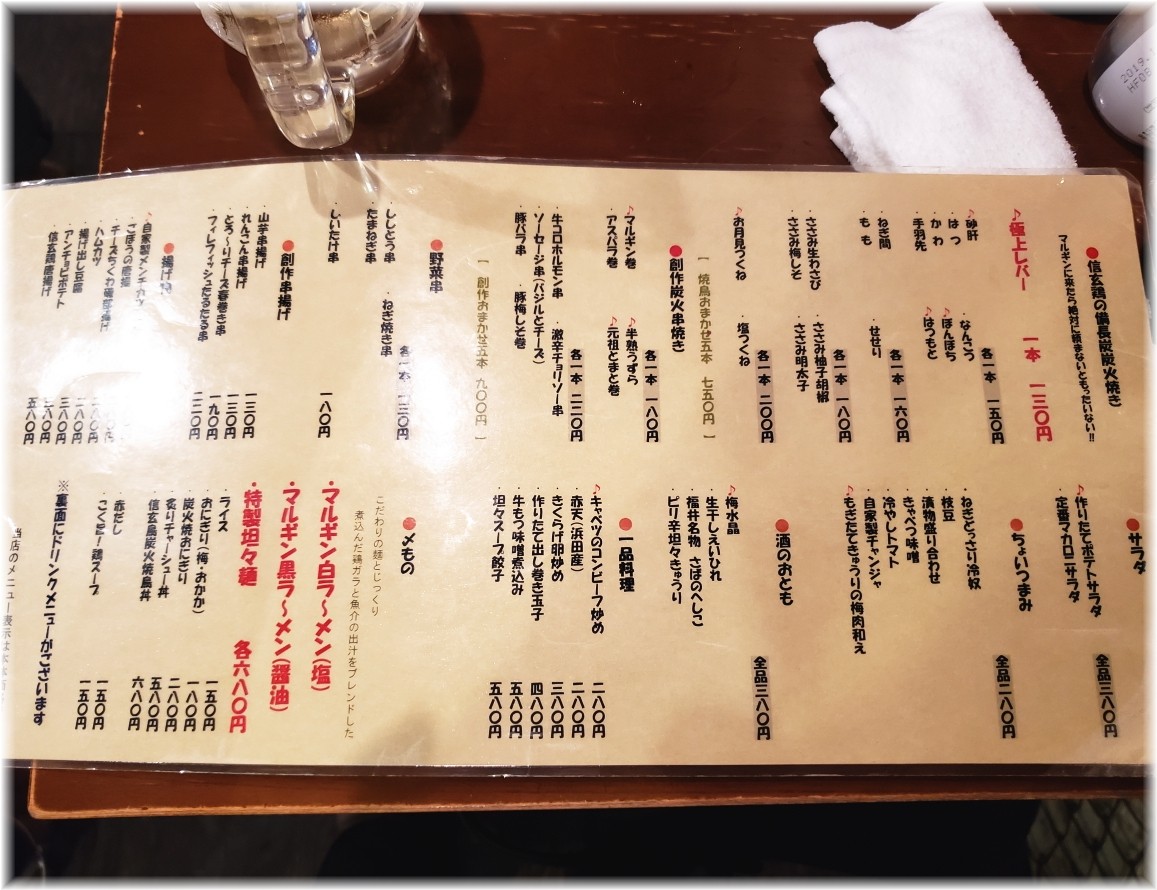 ●信玄鶏の備長炭炭火焼き
マルギンに来たら絶対に頼まないともったいない!!
♪極上レバー 一本 一三〇円
♪砂肝 ・なんこつ 各一本 一五〇円
・はつ ♪ぼんぼち
・かわ ♪はつもと
・手羽先
・ねぎ間 ・せせり 各一本 一六〇円
・もも
・ささみ生わさび ・ささみ柚子胡椒 各一本 一八〇円
・ささみ梅しそ ・ささみ明太子
♪お月見つくね ・塩つくね 各一本 二〇〇円
[ 焼鳥おまかせ五本 七五〇円 ]
●創作炭火串焼き
♪マルギン巻 ♪半熟うずら 各一本 一八〇円
・アスパラ巻 ♪元祖とまと巻
・牛コロホルモン串 ・激辛チョリソー串 各一本 二二〇円
・ソーセージ串(バジルとチーズ)
・豚バラ串 ・豚梅しそ巻
[ 創作おまかせ五本 九〇〇円 ]
●野菜串
・ししとう串 ・ねぎ焼き串 各一本 一三〇円
・たまねぎ串
・しいたけ串 一八〇円
●創作串揚げ
・山芋串揚げ 一三〇円
・れんこん串揚げ 一三〇円
・とろ〜りチーズ春巻き串 一九〇円
・フィレフィッシュたるたる串 二二〇円
●揚げ物
♪自家製メンチカツ
・ごぼうの唐揚
・チーズちくわ磯部揚げ
・ハムカツ 二八〇円
・揚げ出し豆腐 二八〇円
・アンチョビポテト 三八〇円
・信玄鶏唐揚げ 五八〇円
●サラダ
♪作りたてポテトサラダ 全品三八〇円
・定番マカロニサラダ
●ちょいつまみ 全品二八〇円
・ねぎどっさり冷奴
・枝豆
・漬物盛り合わせ
・きゃべつ味噌
・冷やしトマト
・自家製チャンジャ
♪もぎたてきゅうりの梅肉和え
●酒のおとも 全品三八〇円
♪梅水晶
・生干しえいひれ
・福井名物 さばのへしこ
・ピリ辛坦々きゅうり
●一品料理
♪キャベツのコンビーフ炒め 二八〇円
・赤天(浜田産) 二八〇円
・きくらげ卵炒め 三八〇円
・作りたて出し巻き玉子 四八〇円
・牛もつ味噌煮込み 五八〇円
・坦々スープ餃子 五八〇円
●〆もの
こだわりの麺とじっくり
煮込んだ鶏ガラと魚介の出汁をブレンドした
・マルギン白ラ〜メン(塩)
・マルギン黒ラ〜メン(醤油)
・特製坦々麺 各六八〇円
・ライス 一五〇円
・おにぎり(梅・おかか) 一八〇円
・炭火焼おにぎり 二八〇円
・炙りチャーシュー丼 五八〇円
・信玄鳥炭火焼鳥丼 六八〇円
・赤だし 一五〇円
・こくまろ鶏スープ 一五〇円
※裏面にドリンクメニューがございます